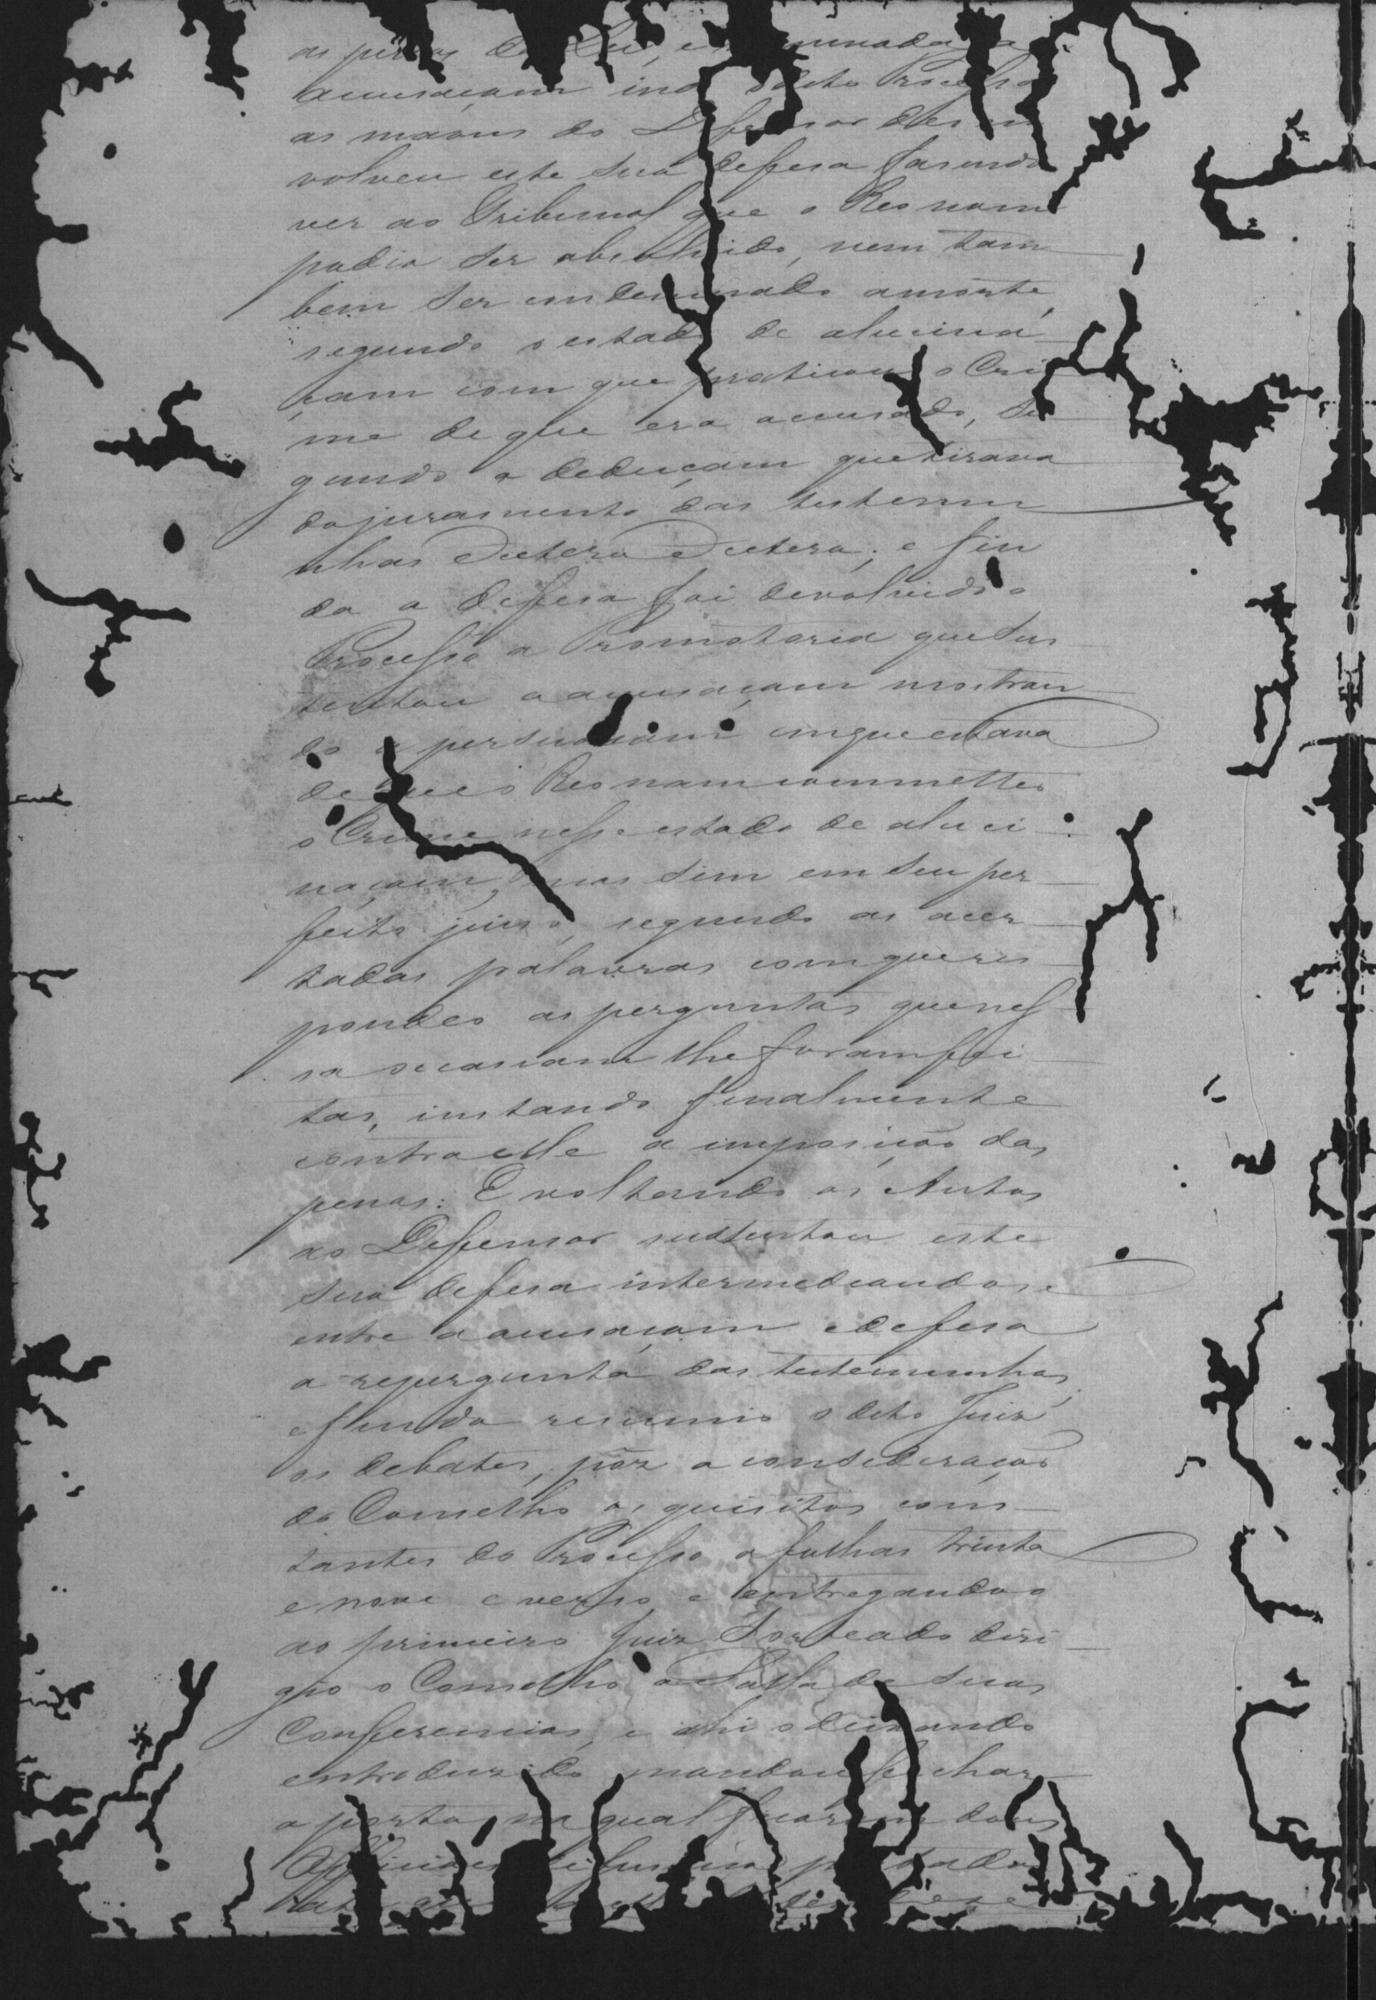 as penas da Lei, e
accusaçam indo o dito Processo
as maons do Defensor desen
volveu este sua deffesa fasendo
ver ao Tribunal que o Reo nam
podia ser absolvido, nem tam
bem ser condemnado amorte,
segundo o estado de alucina
çam com que praticou o Cri
me de que era accusado, se
gundo a deducçam que tirava
do juramento das testemu
nhas etcetera etcetera; e fin
da a deffesa foi devolvido o
Processo a Promotoria que sus
tentou a accusaçam mostran
do a persuaçam em que estava
de que o Reo nam commetteo
o Crime nesse estado de aluci
naçam, mas sim em seu per
feito juiso, segundo as acer
tadas palavras com que res
pondeo as perguntas que nes
sa occasiam lhe foram fei
tas, instando finalmente
contra elle a imposição das
penas: E voltando os Autos
ao Deffensor sustentou este
sua defesa intermediandose
entre a accusaçam e defesa
a repergunta das testemunhas,
e finda resumio o dito Juiz
os debates, pôz a consideração
do Conselho os quisitos cons
tantes do Processo a folhas trinta
e nove e verso, e entregandoo
ao primeiro Juiz Sorteado diri
gio o Conselho a Salla de suas
Conferencias, e ahi o deixando
entroduzido mandou fechar
a porta, na qual ficaram dous
Officiaes de Justiça